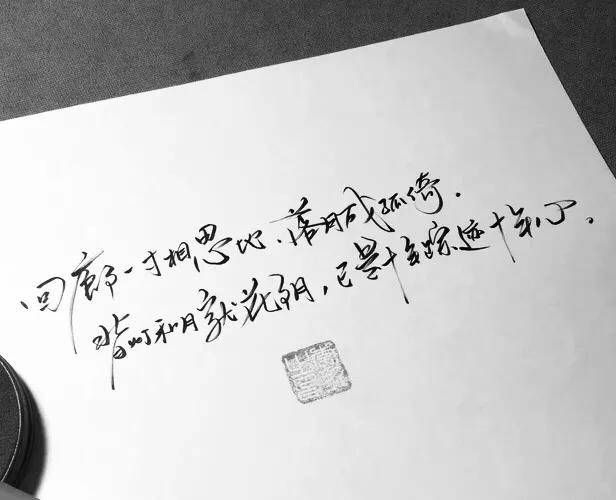 回廊一寸相思地、落月成孤倚.
背灯和月就花阴,已是十年踪迹十年心.